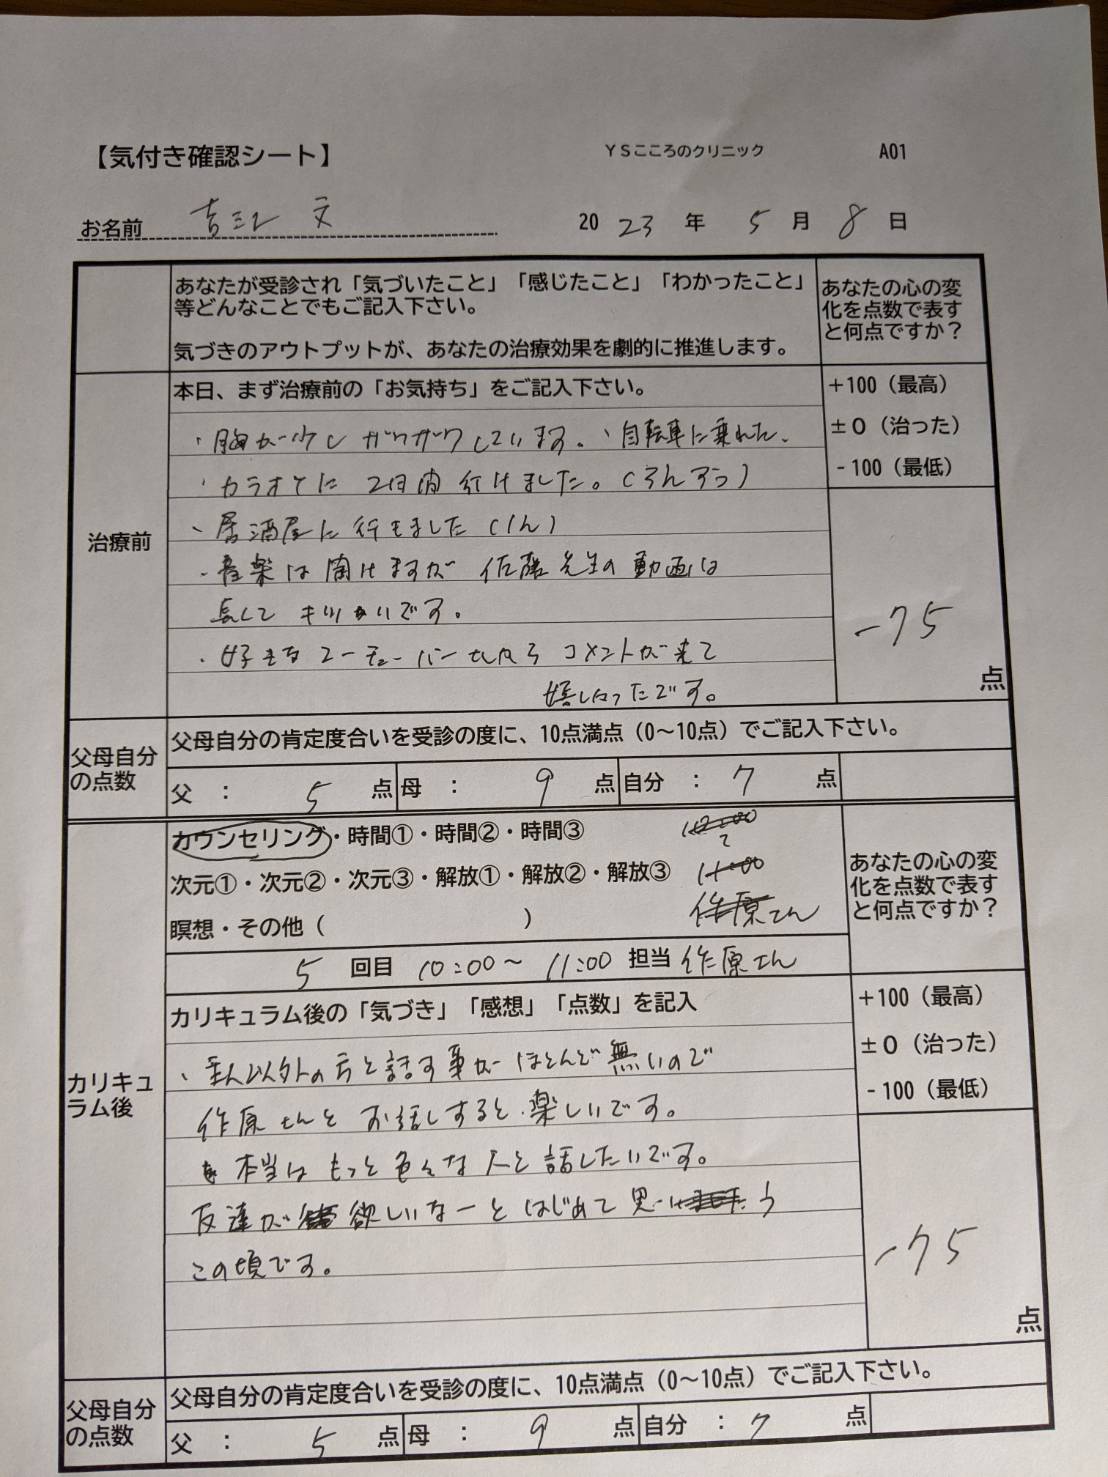 【気付き確認シート】 YSこころのクリニック A01
お名前 文 2023年 5月 8日
あなたが受診され「気づいたこと」「感じたこと」「わかったこと」
等どんなことでもご記入下さい。
気づきのアウトプットが、あなたの治療効果を劇的に推進します。
あなたの心の変
化を点数で表す
と何点ですか？
治療前
本日、まず治療前の「お気持ち」をご記入下さい。
・胸が少しガクガクしています。・自転車に乗れた。
・カラオケに2日間行けました。(
・居酒屋に行きました(
・音楽は聞けますが 佐藤先生の動画は
長くてキツいです。
・好きなユーチューバーさんから コメントが来て
嬉しかったです。
+100（最高）
±0（治った）
-100（最低）
-75
点
父母自分
の点数
父母自分の肯定度合いを受診の度に、10点満点（0～10点）でご記入下さい。
父 : 5 点 母 : 9 点 自分 : 7 点
カウンセリング・時間①・時間②・時間③
次元①・次元②・次元③・解放①・解放②・解放③ 11:00
瞑想・その他（ ） 作原さん
5 回目 10:00～ 11:00 担当 作原さん
あなたの心の変
化を点数で表す
と何点ですか？
カリキュ
ラム後
カリキュラム後の「気づき」「感想」「点数」を記入
・主人以外の方と話す事がほとんど無いので
作原さんとお話しすると楽しいです。
本当はもっと色々な人と話したいです。
友達が欲しいなーとはじめて思う
この頃です。
+100（最高）
±0（治った）
-100（最低）
-75
点
父母自分
の点数
父母自分の肯定度合いを受診の度に、10点満点（0～10点）でご記入下さい。
父 : 5 点 母 : 9 点 自分 : 7 点